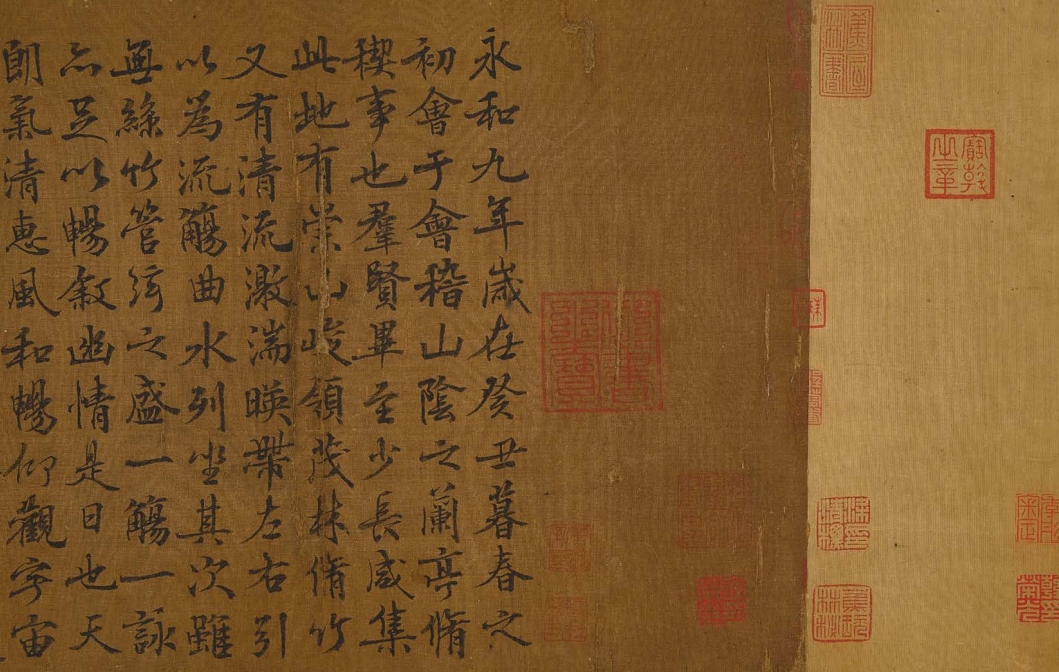 永和九年歲在癸丑暮春之
初會于會稽山陰之蘭亭脩
稧事也羣賢畢至少長咸集
此地有崇山峻領茂林脩竹
又有清流激湍暎帶左右引
以為流觴曲水列坐其次雖
無絲竹管弦之盛一觴一詠
亦足以暢敘幽情是日也天
朗氣清惠風和暢仰觀宇宙